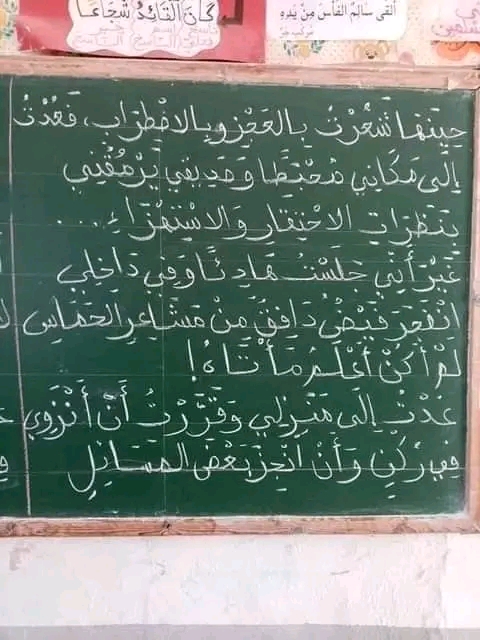 كَانَ القَائِدُ شُجَاعًا
أَلْقَى سَالِمٌ الفَأْسَ مِنْ يَدِهِ
حِينَهَا شَعُرْتُ بِالعَجْزِ وَبِالاضْطِرَابِ، فَعُدْتُ
إِلَى مَكَانِي مُحْبَطًا وَصَدِيقِي يَرْمُقُنِي
بِنَظَرَاتِ الاحْتِقَارِ وَالاسْتِهْزَاءِ...
غَيْرَ أَنَّنِي جَلَسْتُ هَادِئًا وَفِي دَاخِلِي
انْفَجَرَ فَيْضٌ دَافِقٌ مِنْ مَشَاعِرِ الحَمَاسِ
لَمْ أَكُنْ أَعْلَمُ مَأْتَاهُ!
عُدْتُ إِلَى مَنْزِلِي وَقَرَّرْتُ أَنْ أَنْزَوِي
فِي رُكْنٍ وَأَنْ أُنْجِزَ بَعْضَ المَسَائِلِ